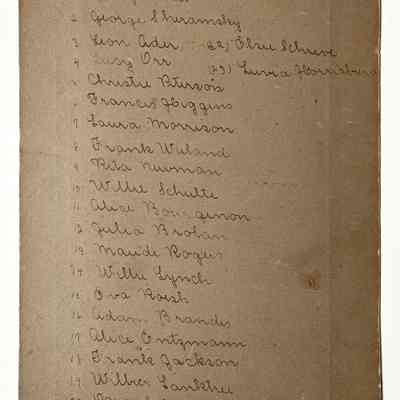 2 George Shiramsky
3 Leon Ader 22) Elsie Schieve
4 Lucy Orr 23) Luvia
Christie Peterson
6 Francis Higgins
7 Laura Morrison
8 Frank Wieland
9 Rita Newman
10 Willie Schulte
11 Alice Bourginon
12 Julia Brolan
13 Maude Rogers
14 Willie Lynch
15 Ova Roesh
16 Adam Brandes
17 Alice Entzmann
18 Frank Jackson
19 Wilber Lanktree